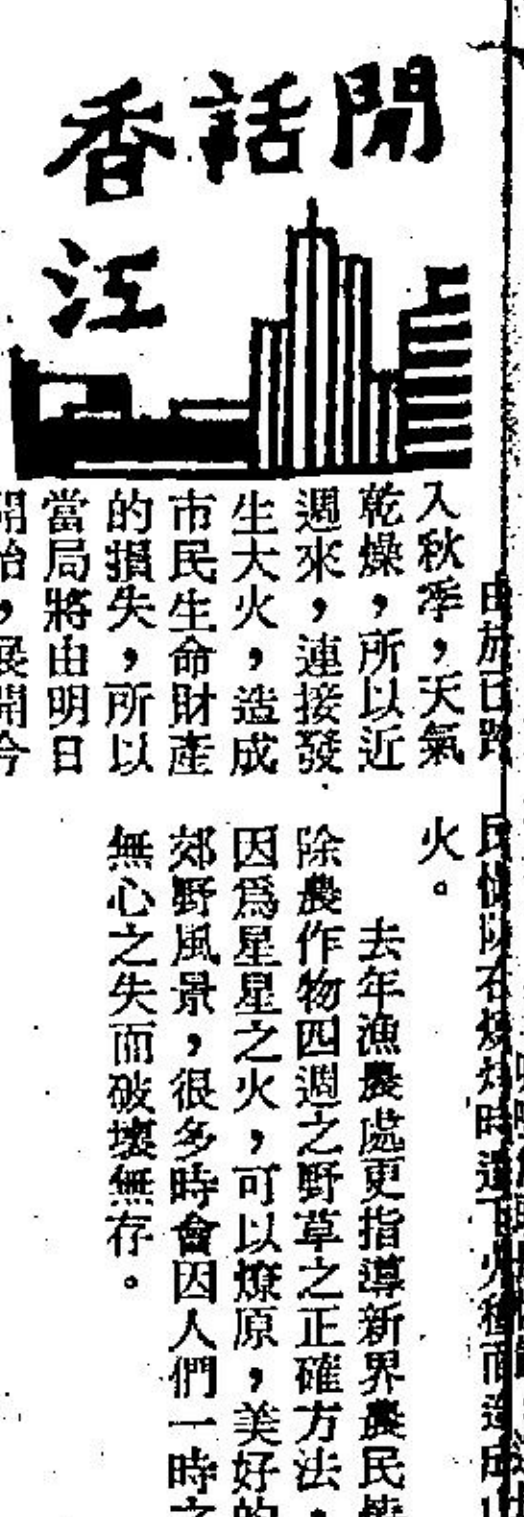 閒話香
江
由於已踏
入秋季，天氣
乾燥，所以近
週來，連接發
生大火，造成
市民生命財產
的損失，所以
當局將由明日
開始，展開今
火。
去年漁農處更指導新界農民
除農作物四週之野草之正確方法，
因爲星星之火，可以燎原，美好的
郊野風景，很多時會因人們一時之
無心之失而破壞無存。